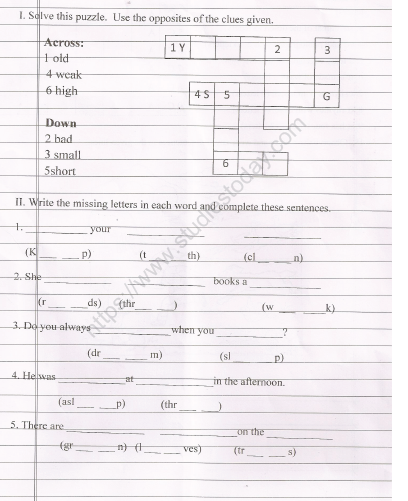 I. Solve this puzzle. Use the opposites of the clues given.
Across:
1 old
4 weak
6 high
1 Y 2 3
4 S 5 G
6
Down
2 bad
3 small
5short
II. Write the missing letters in each word and complete these sentences.
1. ____________ your ____________ ____________
(K___ ___ p) (t ___ ___ th) (cl___ ___ n)
2. She____________ ____________ books a ____________
(r ___ ___ ds) (thr___ ___) (w ___ ___k)
3. Do you always____________when you ____________?
(dr ___ ___ m) (sl ___ ___ p)
4. He was ____________at____________in the afternoon.
(asl ___ ___p) (thr ___ ___)
5. There are ____________ ____________on the ____________
(gr ___ ___ n) (l ___ ___ ves) (tr ___ ___ s)
https://www.studiestoday.com